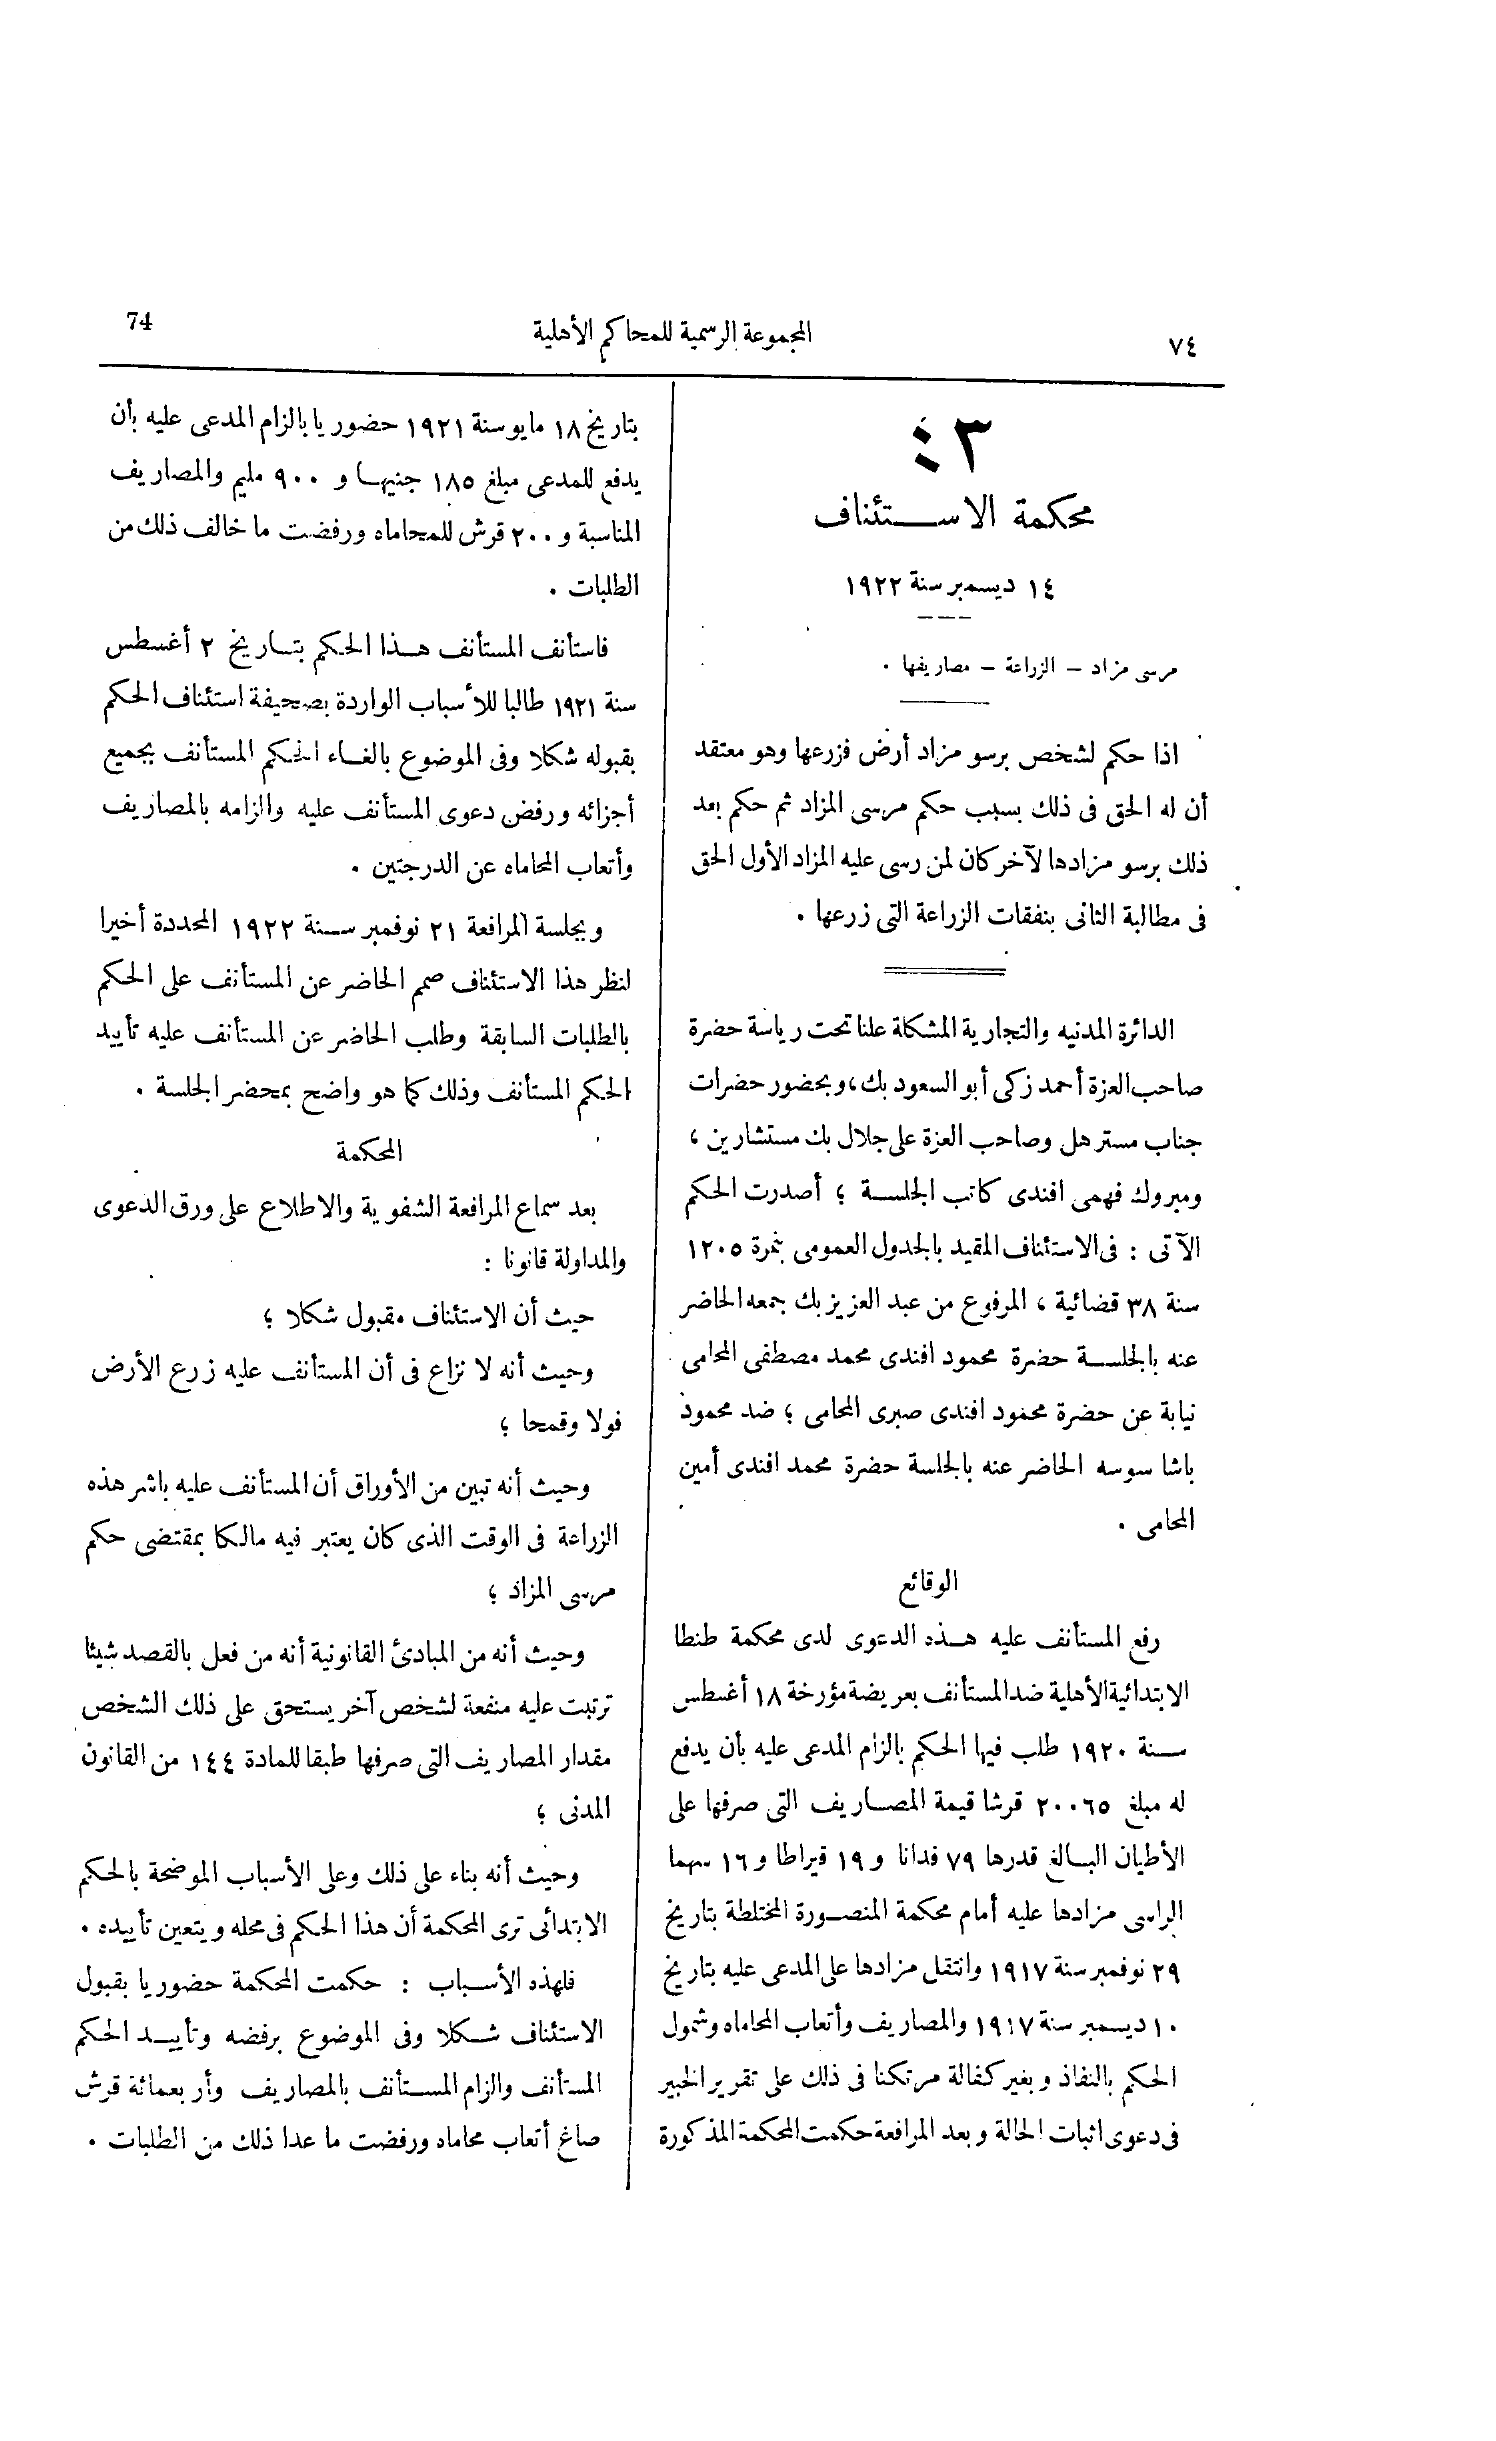 ٧٤
المجموعة الرسمية للمحاكم الأهلية
74
٤٣
محكمة الاستئناف
١٤ ديسمبر سنة ١٩٢٢
مرسى مزاد – الزراعة – مصاريفها .
اذا حكم لشخص برسو مزاد أرض فزرعها وهو معتقد
أن له الحق فى ذلك بسبب حكم مرسى المزاد ثم حكم بعد
ذلك برسو مزادها لآخر كان لمن رسى عليه المزاد الأول الحق
فى مطالبة الثانى بنفقات الزراعة التى زرعها .
الدائرة المدنيه والتجارية المشكلة علنا تحت رياسة حضرة
صاحب العزة أحمد زكى أبو السعود بك، وبحضور حضرات
جناب مستر هل وصاحب العزة على جلال بك مستشارين ،
ومبروك فهمى افندى كاتب الجلسة ؛ أصدرت الحكم
الآتى : فى الاستئناف المقيد بالجدول العمومى بنمرة ١٢٠٥
سنة ٣٨ قضائية ، المرفوع من عبد العزيز بك جمعه الحاضر
عنه بالجلسة حضرة محمود افندى محمد مصطفى المحامى
نيابة عن حضرة محمود افندى صبرى المحامى ؛ ضد محمود
باشا سوسه الحاضر عنه بالجلسة حضرة محمد افندى أمين
المحامى .
الوقائع
رفع المستأنف عليه هذه الدعوى لدى محكمة طنطا
الابتدائية الأهلية ضد المستأنف بعريضة مؤرخة ١٨ أغسطس
سنة ١٩٢٠ طلب فيها الحكم بالزام المدعى عليه بأن يدفع
له مبلغ ٢٠٠٦٥ قرشا قيمة المصاريف التى صرفها على
الأطيان البالغ قدرها ٧٩ فدانا و ١٩ قيراطا و ١٦ سهما
الراسى مزادها عليه أمام محكمة المنصورة المختلطة بتاريخ
٢٩ نوفمبر سنة ١٩١٧ وانتقل مزادها على المدعى عليه بتاريخ
١٠ ديسمبر سنة ١٩١٧ والمصاريف وأتعاب المحاماه وشمول
الحكم بالنفاذ وبغير كفالة مرتكنا فى ذلك على تقرير الخبير
فى دعوى اثبات الحالة وبعد المرافعة حكمت المحكمة المذكورة
بتاريخ ١٨ مايو سنة ١٩٢١ حضوريا بالزام المدعى عليه بأن
يدفع للمدعى مبلغ ١٨٥ جنيها و ٩٠٠ مليم والمصاريف
المناسبة و ٢٠٠ قرش للمحاماه ورفضت ما خالف ذلك من
الطلبات .
فاستأنف المستأنف هذا الحكم بتاريخ ٢ أغسطس
سنة ١٩٢١ طالبا للأسباب الواردة بصحيفة استئناف الحكم
بقبوله شكلا وفى الموضوع بالغاء الحكم المستأنف بجميع
أجزائه ورفض دعوى المستأنف عليه والزامه بالمصاريف
وأتعاب المحاماه عن الدرجتين .
وبجلسة المرافعة ٢١ نوفمبر سنة ١٩٢٢ المحددة أخيرا
لنظر هذا الاستئناف صمم الحاضر عن المستأنف على الحكم
بالطلبات السابقة وطلب الحاضر عن المستأنف عليه تأييد
الحكم المستأنف وذلك كما هو واضح بمحضر الجلسة .
المحكمة
بعد سماع المرافعة الشفوية والاطلاع على ورق الدعوى
والمداولة قانونا :
حيث أن الاستئناف مقبول شكلا ؛
وحيث أنه لا نزاع فى أن المستأنف عليه زرع الأرض
فولا وقمحا ؛
وحيث أنه تبين من الأوراق أن المستأنف عليه باشر هذه
الزراعة فى الوقت الذى كان يعتبر فيه مالكا بمقتضى حكم
مرسى المزاد ؛
وحيث أنه من المبادئ القانونية أنه من فعل بالقصد شيئا
ترتبت عليه منفعة لشخص آخر يستحق على ذلك الشخص
مقدار المصاريف التى صرفها طبقا للمادة ١٤٤ من القانون
المدنى ؛
وحيث أنه بناء على ذلك وعلى الأسباب الموضحة بالحكم
الابتدائى ترى المحكمة أن هذا الحكم فى محله ويتعين تأييده .
فلهذه الأسباب : حكمت المحكمة حضوريا بقبول
الاستئناف شكلا وفى الموضوع برفضه وتأييد الحكم
المستأنف والزام المستأنف بالمصاريف وأربعمائة قرش
صاغ أتعاب محاماه ورفضت ما عدا ذلك من الطلبات .